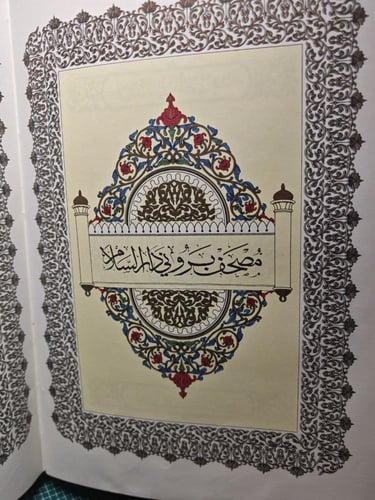 مصحف بروني دار السلام